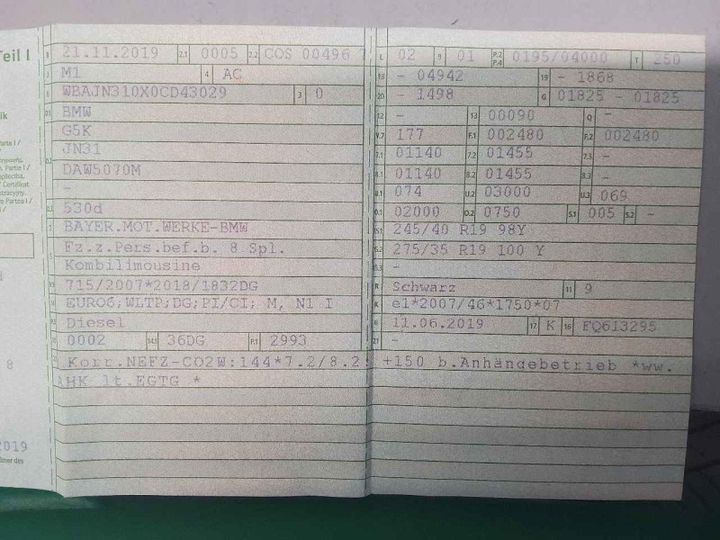 Teil I
B 21.11.2019 2.1 0005 2.2 COS 00496 7
J M1 4 AC
E WBAJN310X0CD43029 3 0
D.1 BMW
G5K
D.2 JN31
DAW5070M
-
D.3 530d
2 BAYER.MOT.WERKE-BMW
5 Fz.z.Pers.bef.b. 8 Spl.
Kombilimousine
V.9 715/2007*2018/1832DG
14 EURO6;WLTP;DG;PI/CI; M, N1 I
P.3 Diesel
10 0002 14.1 36DG P.1 2993
22 Korr.NEFZ-CO2W:144*7.2/8.2: +150 b.Anhängebetrieb *ww.
AHK lt.EGTG *
L 02 9 01 P.2 P.4 0195/04000 T 250
18 - 04942 19 - 1868
20 - 1498 G 01825 - 01825
12 - 13 00090 Q -
V.7 177 F.1 002480 F.2 002480
7.1 01140 7.2 01455 7.3 -
8.1 01140 8.2 01455 8.3 -
U.1 074 U.2 03000 U.3 069
O.1 02000 O.2 0750 S.1 005 S.2 -
15.1 245/40 R19 98Y
15.2 275/35 R19 100 Y
15.3 -
R Schwarz 11 9
K e1*2007/46*1750*07
6 11.06.2019 17 K 16 FQ613295
21 -
8
2019